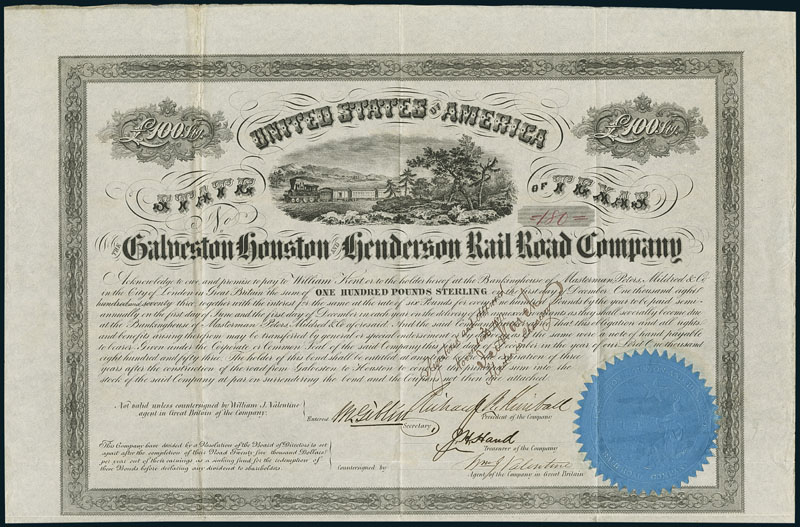 £100 Stg.
UNITED STATES OF AMERICA
£100 Stg.
STATE OF TEXAS
No
180
THE Galveston Houston and Henderson Rail Road Company
Acknowledge to owe and promise to pay to William Kent or to the holder hereof at the Bankinghouse of Masterman, Peters, Mildred & Co
in the City of London in Great Britain the sum of ONE HUNDRED POUNDS STERLING on the first day of December, One thousand eight
hundred and seventy three together with the interest for the same at the rate of six Pounds for every one hundred Pounds by the year to be paid semi-
annually on the first day of June and the first day of December in each year on the delivery of the annexed Coupons as they shall severally become due
at the Bankinghouse of Masterman Peters Mildred & Co aforesaid. And the said Company that this obligation and all rights
and benefit arising therefrom may be transferred by general or special endorsement or by delivery as if the same were a note of hand payable
to bearer. Given under the Corporate or Common Seal of the said Company this first day of December in the year of our Lord One thousand
eight hundred and fifty three. The holder of this bond shall be entitled at any time before the expiration of three
years after the construction of the road from Galveston to Houston to convert the principal sum into the
stock of the said Company at par on surrendering the bond and the Coupons not then due attached.
Not valid unless countersigned by William J. Valentine
agent in Great Britain of the Company.
Entered McGiblin
Secretary
Richard R. Kimball
President of the Company
J. H. Hand
Treasurer of the Company
This Company have decided by a Resolution of the Board of Directors to set
apart after the completion of their Road Twenty five thousand Dollars
per year out of their earnings as a sinking fund for the redemption of
these Bonds before declaring any dividend to shareholders.
Countersigned by
Wm J Valentine
Agent of the Company in Great Britain